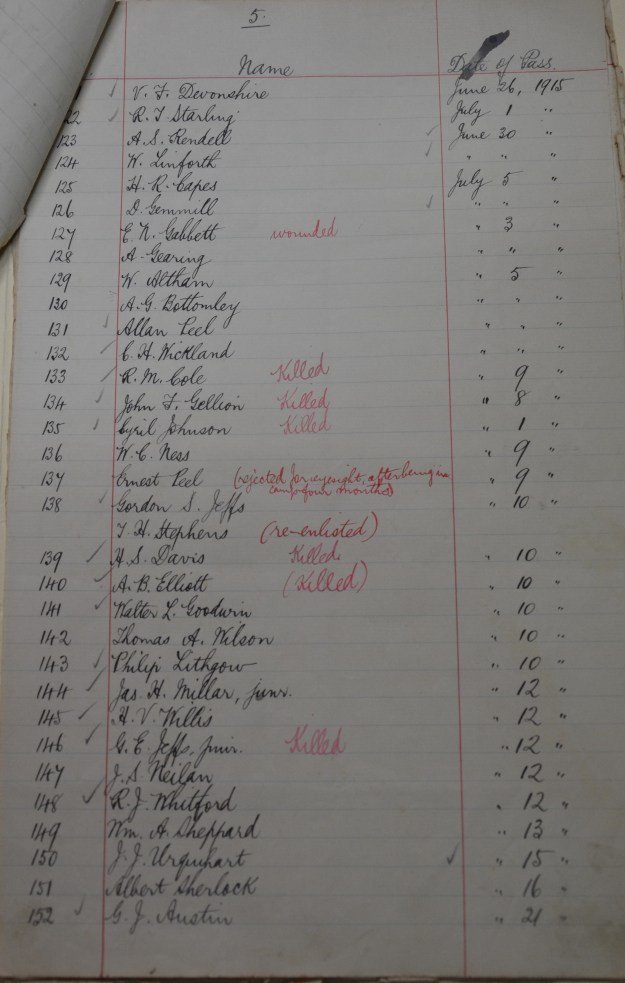 5.
Name Date of Pass
V. F. Devonshire June 26, 1915
22 R. T. Starling July 1 "
123 A. S. Rendell June 30 "
124 W. Linforth " " "
125 H. R. Capes July 5 "
126 D. Gemmill " " "
127 E. N. Gabbett wounded " 3 "
128 A. Gearing " " "
129 W. Altham " 5 "
130 A. G. Bottomley " " "
131 Allan Peel " " "
132 C. H. Wickland " " "
133 R. M. Cole Killed " 9 "
134 John F. Gellion Killed " 8 "
135 Cyril Johnson Killed " 1 "
136 W. C. Ness " 9 "
137 Ernest Peel (rejected for eyesight, after being in " 9 "
camp four months)
138 Gordon S. Jeffs " 10 "
T. H. Stephens (re-enlisted)
139 H. S. Davis Killed " 10 "
140 A. B. Elliott (Killed) " 10 "
141 Walter L. Goodwin " 10 "
142 Thomas A. Wilson " 10 "
143 Philip Lithgow " 10 "
144 Jas. H. Millar, junr. " 12 "
145 H. V. Willis " 12 "
146 G. E. Jeffs, junr. Killed " 12 "
147 J. S. Neilan " 12 "
148 R. J. Whitford " 12 "
149 Wm. A. Sheppard " 13 "
150 J. J. Urquhart " 15 "
151 Albert Sherlock " 16 "
152 G. J. Austin " 21 "